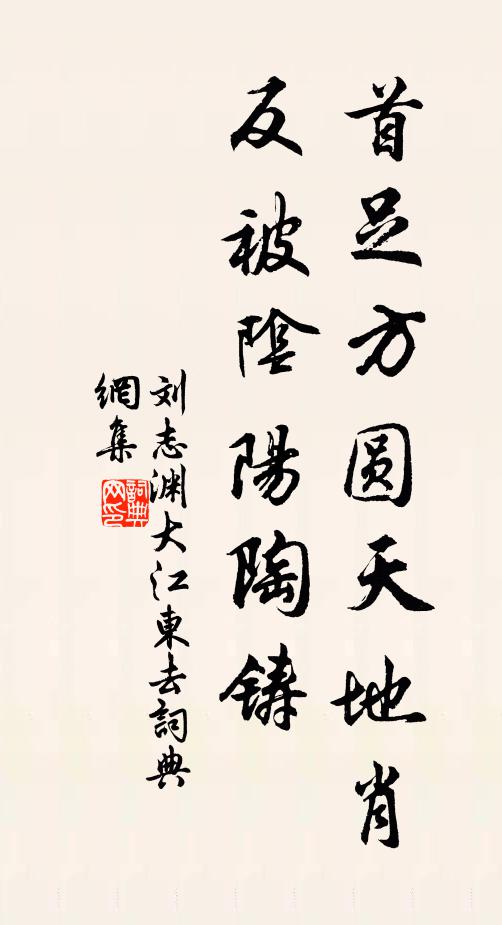 首足方圆天地肖
反被陰陽陶铸
刘志渊大江東去詞典
網集
詞典
网印